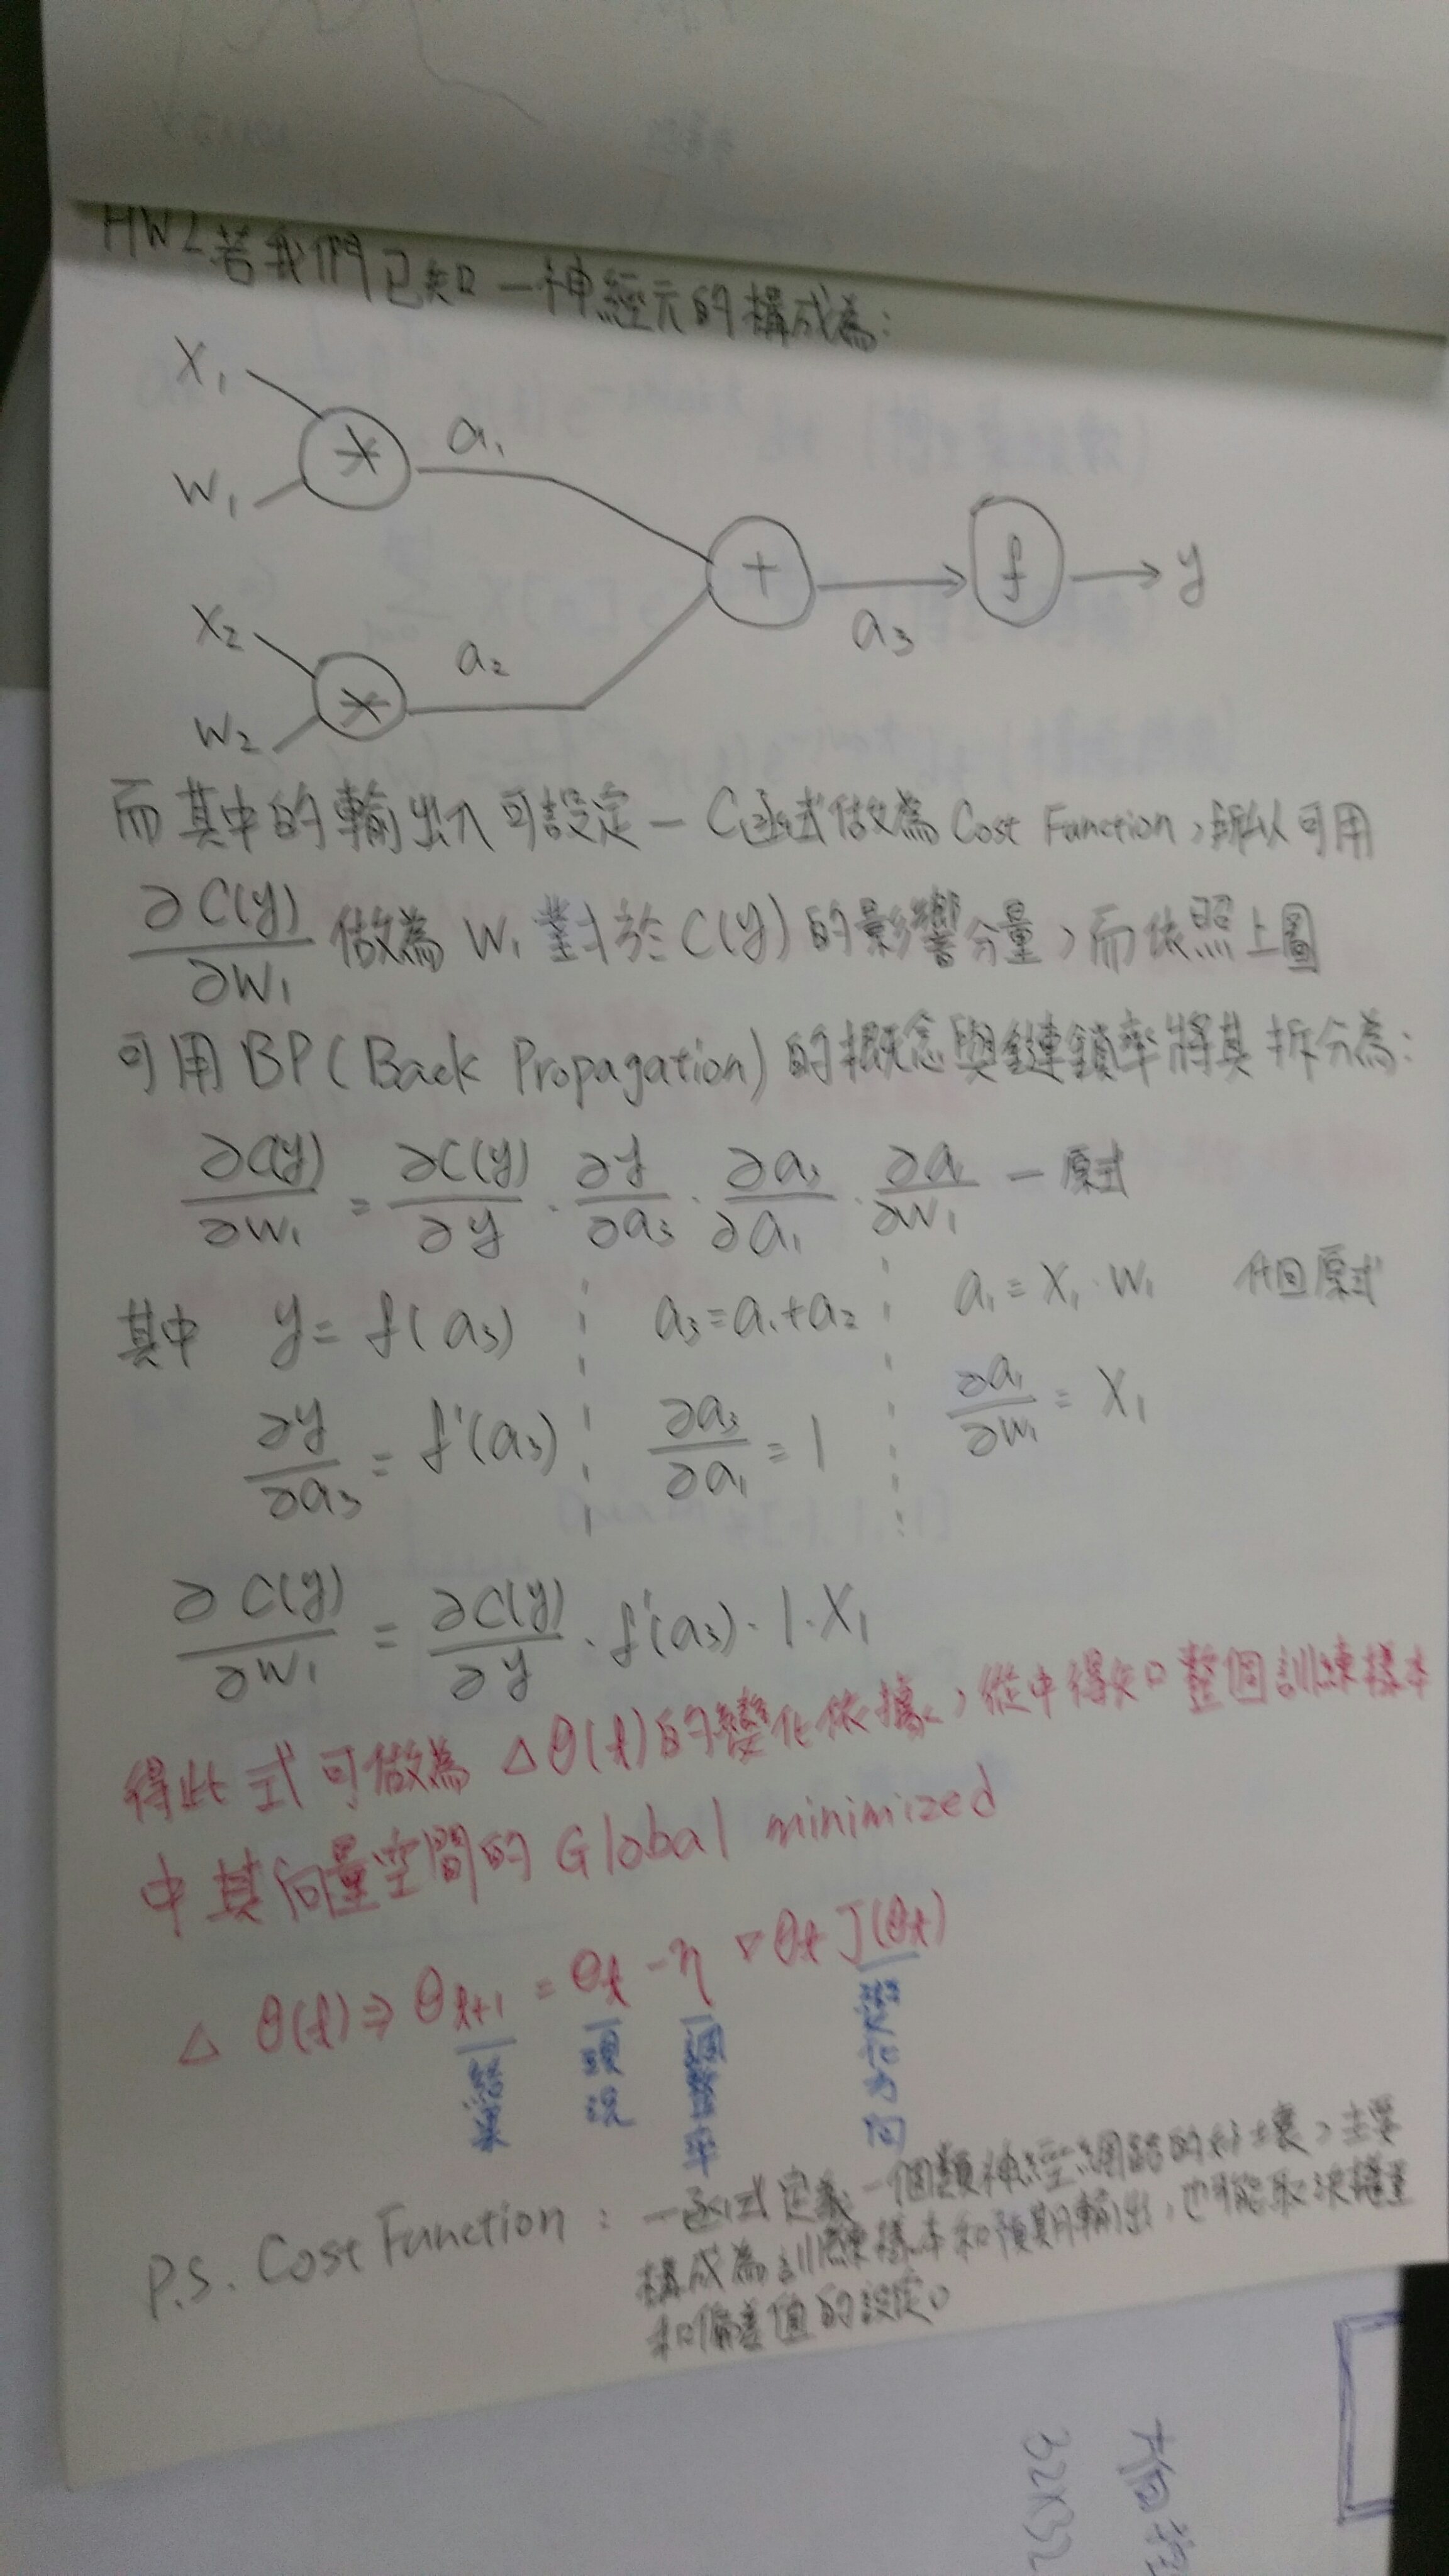 HW2.若我們已知一神經元的構成為:
X₁
a₁
*
W₁
+
f
y
a₃
X₂
a₂
*
W₂
而其中的輸出入可設定一C函式做為Cost Function,所以可用
∂C(y)/∂W₁ 做為 W₁ 對於C(y)的影響分量,而依照上圖
可用BP(Back Propagation)的概念與鏈鎖率將其拆分為:
∂C(y)/∂W₁ = ∂C(y)/∂y · ∂y/∂a₃ · ∂a₃/∂a₁ · ∂a₁/∂W₁ — 原式
其中 y = f(a₃) a₃=a₁+a₂ a₁ = X₁·W₁ 代回原式
∂y/∂a₃ = f'(a₃) ∂a₃/∂a₁ = 1 ∂a₁/∂W₁ = X₁
∂C(y)/∂W₁ = ∂C(y)/∂y · f'(a₃)·1·X₁
得此式可做為 △θ(t)的變化依據,從中得知整個訓練樣本
中其向量空間的Global minimized
△ θ(t) ⇒ θt+1 = θt - η ▽θt J(θt)
結果
現況
調整率
變化方向
P.S. Cost Function : 一函式定義一個類神經網路的好壞,主要
構成為訓練樣本和預期輸出,也可能取決權重
和偏差值的設定。
32X32